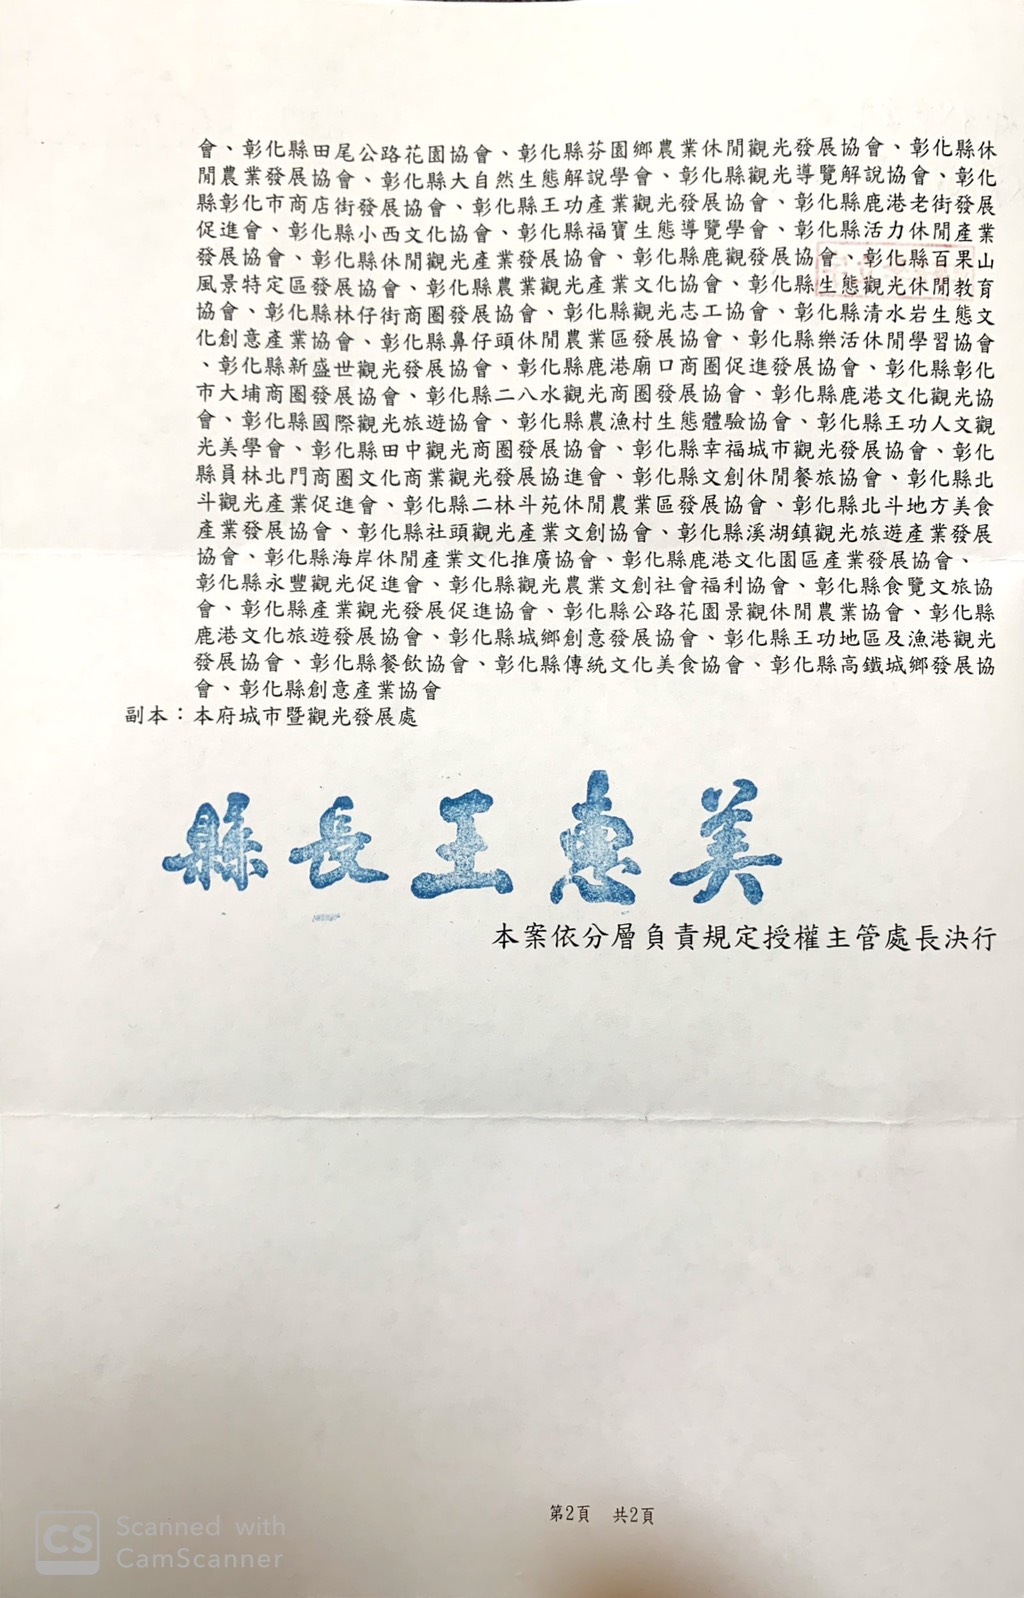 會、彰化縣田尾公路花園協會、彰化縣芬園鄉農業休閒觀光發展協會、彰化縣休
閒農業發展協會、彰化縣大自然生態解說學會、彰化縣觀光導覽解說協會、彰化
縣彰化市商店街發展協會、彰化縣王功產業觀光發展協會、彰化縣鹿港老街發展
促進會、彰化縣小西文化協會、彰化縣福寶生態導覽學會、彰化縣活力休閒產業
發展協會、彰化縣休閒觀光產業發展協會、彰化縣鹿觀發展協會、彰化縣百果山
風景特定區發展協會、彰化縣農業觀光產業文化協會、彰化縣生態觀光休閒教育
協會、彰化縣林仔街商圈發展協會、彰化縣觀光志工協會、彰化縣清水岩生態文
化創意產業協會、彰化縣鼻仔頭休閒農業區發展協會、彰化縣樂活休閒學習協會
、彰化縣新盛世觀光發展協會、彰化縣鹿港廟口商圈促進發展協會、彰化縣彰化
市大埔商圈發展協會、彰化縣二八水觀光商圈發展協會、彰化縣鹿港文化觀光協
會、彰化縣國際觀光旅遊協會、彰化縣農漁村生態體驗協會、彰化縣王功人文觀
光美學會、彰化縣田中觀光商圈發展協會、彰化縣幸福城市觀光發展協會、彰化
縣員林北門商圈文化商業觀光發展協進會、彰化縣文創休閒餐旅協會、彰化縣北
斗觀光產業促進會、彰化縣二林斗苑休閒農業區發展協會、彰化縣北斗地方美食
產業發展協會、彰化縣社頭觀光產業文創協會、彰化縣溪湖鎮觀光旅遊產業發展
協會、彰化縣海岸休閒產業文化推廣協會、彰化縣鹿港文化園區產業發展協會、
彰化縣永豐觀光促進會、彰化縣觀光農業文創社會福利協會、彰化縣食覽文旅協
會、彰化縣產業觀光發展促進協會、彰化縣公路花園景觀休閒農業協會、彰化縣
鹿港文化旅遊發展協會、彰化縣城鄉創意發展協會、彰化縣王功地區及漁港觀光
發展協會、彰化縣餐飲協會、彰化縣傳統文化美食協會、彰化縣高鐵城鄉發展協
會、彰化縣創意產業協會
副本：本府城市暨觀光發展處
縣長王惠美
本案依分層負責規定授權主管處長決行
第2頁 共2頁
CS Scanned with
CamScanner